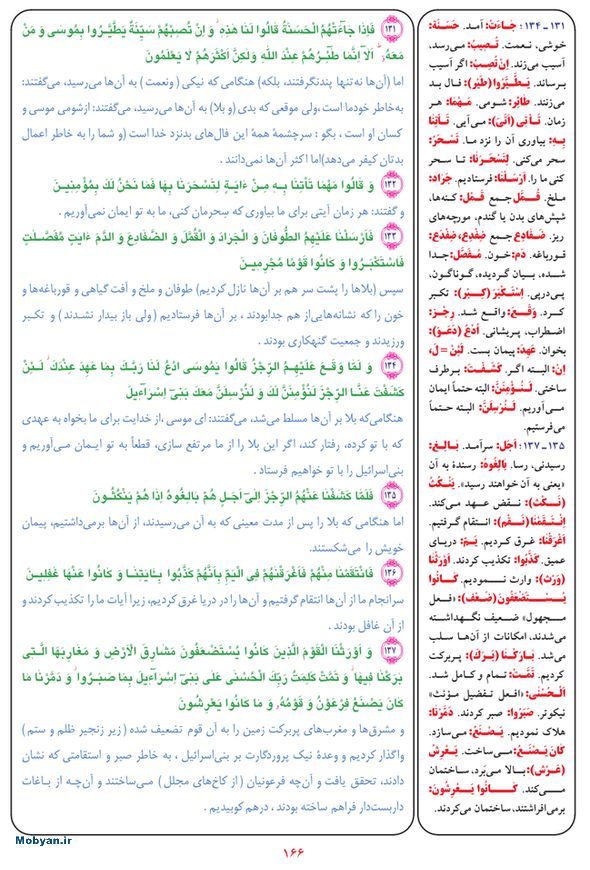 ۱۳۱ ـ ۱۳۴: جَاءَتْ: آمد. حَسَنَة:
خوشی، نعمت. تُصِیبُ: می‌رسد،
آسیب می‌زند. إِنْ تُصِبْ: اگر آسیب
برساند. یَطَّیَّرُوا (طَیْر): فال بد
می‌زنند. طَائِر: شومی. مَهْمَا: هر
زمان. تَأْتِی (أَتَیَ): می‌آیی. تَأْتِنَا
بِهِ: بیاوری آن را نزد ما. تَسْحَرُ:
سحر می‌کنی. لِتَسْحَرَنَا: تا سحر
کنی ما را. أَرْسَلْنَا: فرستادیم. جَرَاد:
ملخ. قُمَّل جمع قُمَّل: کنه‌ها،
شپش‌های بدن یا گندم، مورچه‌های
ریز. ضَفَادِع جمع ضِفْدِع، ضِفْدَع:
قورباغه. دَم: خون. مُفَصَّل: جدا
شده، بیان گردیده، گوناگون،
پی‌درپی. اِسْتَکْبَرَ (کِبْر): تکبر
کرد. وَقَعَ: واقع شد. رِجْز:
اضطراب، پریشانی. اُدْعُ (دَعَوَ):
بخوان. عَهِدَ: پیمان بست. لَئِنْ = لَـ،
إِن: البته اگر. کَشَفْتَ: برطرف
ساختی. لَنُؤْمِنَنَّ: البته حتماً ایمان
می‌آوریم. لَنُرْسِلَنَّ: البته حتماً
می‌فرستیم.
۱۳۵ ـ ۱۳۷: أَجَل: سرآمد. بَالِغ:
رسیدنی، رسا. بَالِغُوهُ: رسندهٔ به آن
«یعنی به آن خواهند رسید». یَنْکُثُ
(نَکْث): نقض عهد می‌کند.
اِنْتَقَمْنَا (نَقْم): انتقام گرفتیم.
أَغْرَقْنَا: غرق کردیم. یَمّ: دریای
عمیق. کَذَّبُوا: تکذیب کردند. أَوْرَثْنَا
(وَرِثَ): وارث نمودیم. کَانُوا
یُسْتَضْعَفُونَ (ضَعْف): «فعل
مجهول» ضعیف نگهداشته
می‌شدند، امکانات از آن‌ها سلب
می‌شد. بَارَکْنَا (بَرَکَ): پربرکت
کردیم. تَمَّتْ: تمام و کامل شد.
اَلْحُسْنَی: «افعل تفضیل مؤنث»
نیکوتر. صَبَرُوا: صبر کردند. دَمَّرْنَا:
هلاک نمودیم. یَصْنَعُ: می‌سازد.
کَانَ یَصْنَعُ: می‌ساخت. یَعْرِشُ
(عَرْش): بالا می‌بَرد، ساختمان
می‌کند. کَانُوا یَعْرِشُونَ:
برمی‌افراشتند، ساختمان می‌کردند.
۱۳۱ فَإِذَا جَآءَتْهُمُ الْحَسَنَةُ قَالُوا لَنَا هَٰذِهِ ۖ وَ إِنْ تُصِبْهُمْ سَیِّئَةٌ یَطَّیَّرُوا بِمُوسَیٰ وَ مَنْ
مَعَهُ ۗ أَلَآ إِنَّمَا طَٰٓئِرُهُمْ عِنْدَ اللهِ وَلَٰکِنَّ أَکْثَرَهُمْ لَا یَعْلَمُونَ
اما (آن‌ها نه‌تنها پندنگرفتند، بلکه) هنگامی که نیکی (ونعمت ) به آن‌ها می‌رسید، می‌گفتند:
به‌خاطر خودما است ،ولی موقعی که بدی (و بلا) به آن‌ها می‌رسید، می‌گفتند: ازشومی موسی و
کسان او است ، بگو : سرچشمهٔ همهٔ این فال‌های بدنزد خدا است (و شما را به خاطر اعمال
بدتان کیفر می‌دهد)اما اکثر آن‌ها نمی‌دانند .
۱۳۲ وَ قَالُوا مَهْمَا تَأْتِنَا بِهِ مِنْ ءَایَةٍ لِتَسْحَرَنَا بِهَا فَمَا نَحْنُ لَکَ بِمُؤْمِنِینَ
و گفتند: هر زمان آیتی برای ما بیاوری که سِحرمان کنی، ما به تو ایمان نمی‌آوریم .
۱۳۳ فَأَرْسَلْنَا عَلَیْهِمُ الطُّوفَانَ وَ الْجَرَادَ وَ الْقُمَّلَ وَ الضَّفَادِعَ وَ الدَّمَ ءَایَٰتٍ مُفَصَّلَٰتٍ
فَاسْتَکْبَرُوا وَ کَانُوا قَوْمًا مُجْرِمِینَ
سپس (بلاها را پشت سر هم بر آن‌ها نازل کردیم) طوفان و ملخ و آفت گیاهی و قورباغه‌ها و
خون را که نشانه‌هایی‌از هم جدابودند ، بر آن‌ها فرستادیم (ولی باز بیدار نشدند ) و تکبر
ورزیدند و جمعیت گنهکاری بودند .
۱۳۴ وَ لَمَّا وَقَعَ عَلَیْهِمُ الرِّجْزُ قَالُوا یَٰمُوسَی ادْعُ لَنَا رَبَّکَ بِمَا عَهِدَ عِنْدَکَ ۖ لَئِنْ
کَشَفْتَ عَنَّا الرِّجْزَ لَنُؤْمِنَنَّ لَکَ وَ لَنُرْسِلَنَّ مَعَکَ بَنِیٓ إِسْرَآءِیلَ
هنگامی‌که بلا بر آن‌ها مسلط می‌شد، می‌گفتند: ای موسی ،از خدایت برای ما بخواه به عهدی
که با تو کرده، رفتار کند، اگر این بلا را از ما مرتفع سازی، قطعاً به تو ایمان می‌آوریم و
بنی‌اسرائیل را با تو خواهیم فرستاد .
۱۳۵ فَلَمَّا کَشَفْنَا عَنْهُمُ الرِّجْزَ إِلَیٰٓ أَجَلٍ هُمْ بَالِغُوهُ إِذَا هُمْ یَنْکُثُونَ
اما هنگامی که بلا را پس از مدت معینی که به آن می‌رسیدند، از آن‌ها برمی‌داشتیم، پیمان
خویش را می‌شکستند.
۱۳۶ فَانْتَقَمْنَا مِنْهُمْ فَأَغْرَقْنَٰهُمْ فِی الْیَمِّ بِأَنَّهُمْ کَذَّبُوا بِـَٔایَٰتِنَا وَ کَانُوا عَنْهَا غَٰفِلِینَ
سرانجام ما از آن‌ها انتقام گرفتیم و آن‌ها را در دریا غرق کردیم، زیرا آیات ما را تکذیب کردند و
از آن غافل بودند .
۱۳۷ وَ أَوْرَثْنَا الْقَوْمَ الَّذِینَ کَانُوا یُسْتَضْعَفُونَ مَشَارِقَ الْأَرْضِ وَ مَغَارِبَهَا الَّتِی
بَٰرَکْنَا فِیهَا ۖ وَ تَمَّتْ کَلِمَتُ رَبِّکَ الْحُسْنَیٰ عَلَیٰ بَنِیٓ إِسْرَآءِیلَ بِمَا صَبَرُوا ۖ وَ دَمَّرْنَا مَا
کَانَ یَصْنَعُ فِرْعَوْنُ وَ قَوْمُهُ وَ مَا کَانُوا یَعْرِشُونَ
و مشرق‌ها و مغرب‌های پربرکت زمین را به آن قوم تضعیف شده ( زیر زنجیر ظلم و ستم )
واگذار کردیم و وعدهٔ نیک پروردگارت بر بنی‌اسرائیل ، به خاطر صبر و استقامتی که نشان
دادند، تحقق یافت و آن‌چه فرعونیان ( از کاخ‌های مجلل ) می‌ساختند و آن‌چه از باغات
داربست‌دار فراهم ساخته بودند ، درهم کوبیدیم .
۱۶۶
Mobyan.ir